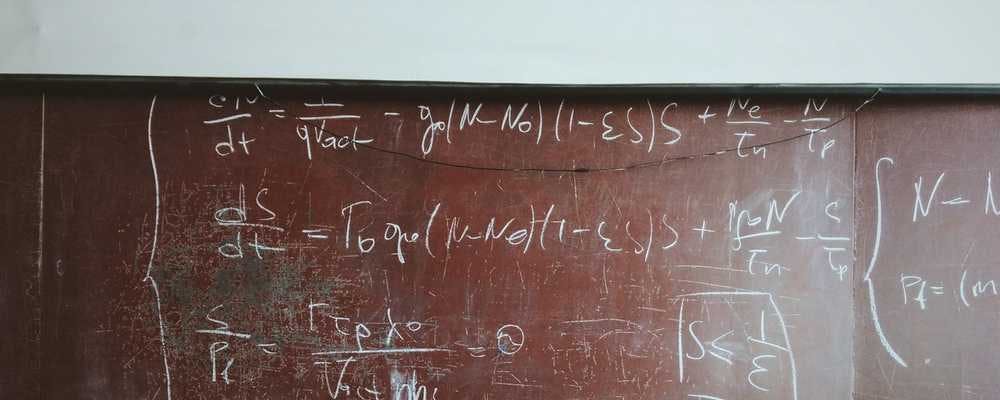 dN/dt = I/qVact - g₀(N-N₀)(1-εS)S + Ne/τn - N/τp
dS/dt = Γ₀g₀(N-N₀)(1-εS)S + N/τn - S/τp
S/Pf = Γτpλ₀/Vact = ②
S ≤ 1/ε
N - N
Pf = (m